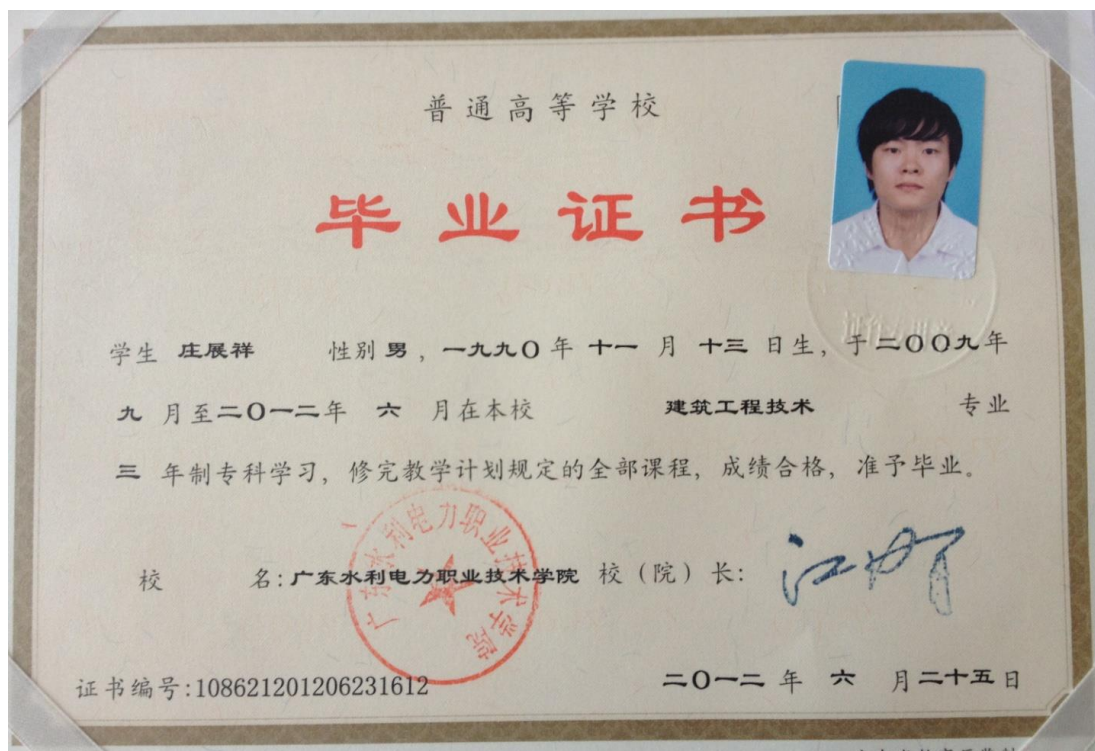 普通高等学校
毕业证书
学生 庄展祥 性别 男 ，一九九〇年 十一 月 十三 日生，于二〇〇九年
九 月至二〇一二年 六 月在本校 建筑工程技术 专业
三 年制专科学习，修完教学计划规定的全部课程，成绩合格，准予毕业。
广东水利电力职业技术学院
校 名：广东水利电力职业技术学院 校（院）长：
证书编号:108621201206231612 二〇一二 年 六 月二十五日